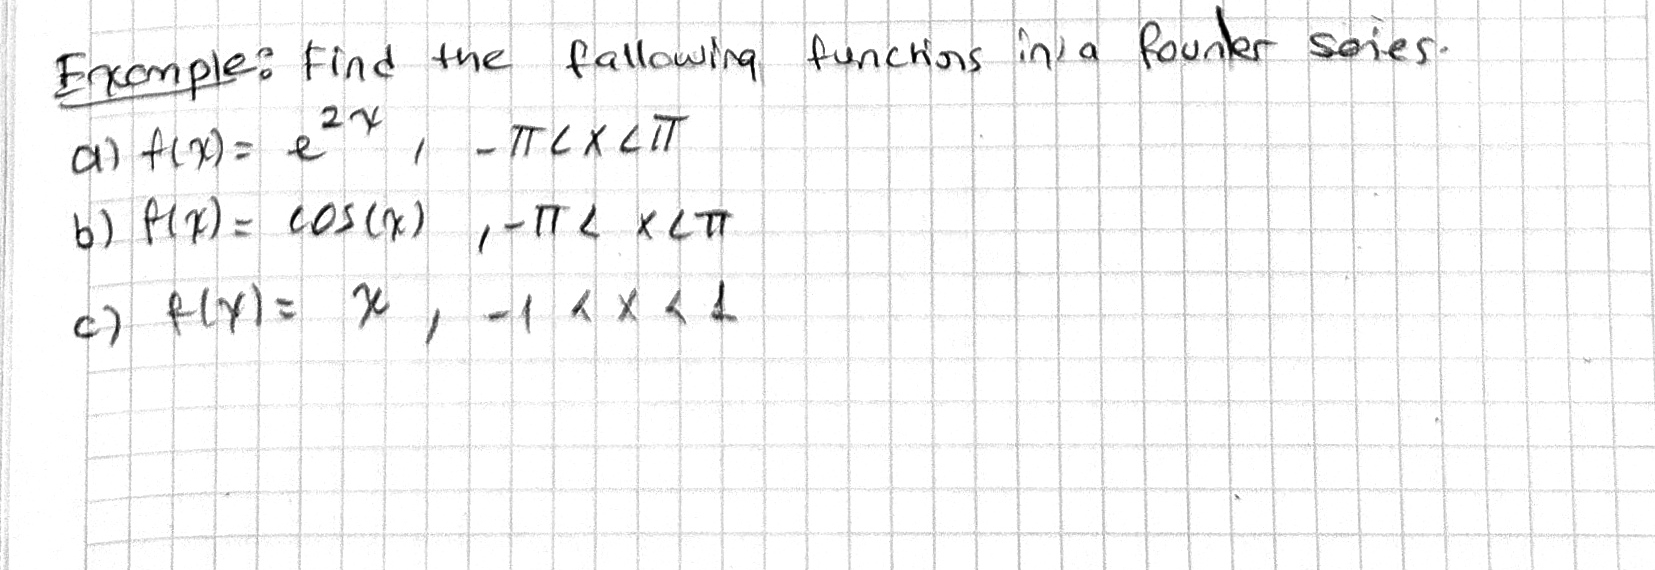 Example: Find the fallowing functions in a fourier seies.
a) f(x) = e^{2x} , -π < x < π
b) f(x) = cos(x) , -π < x < π
c) f(x) = x , -1 < x < 1